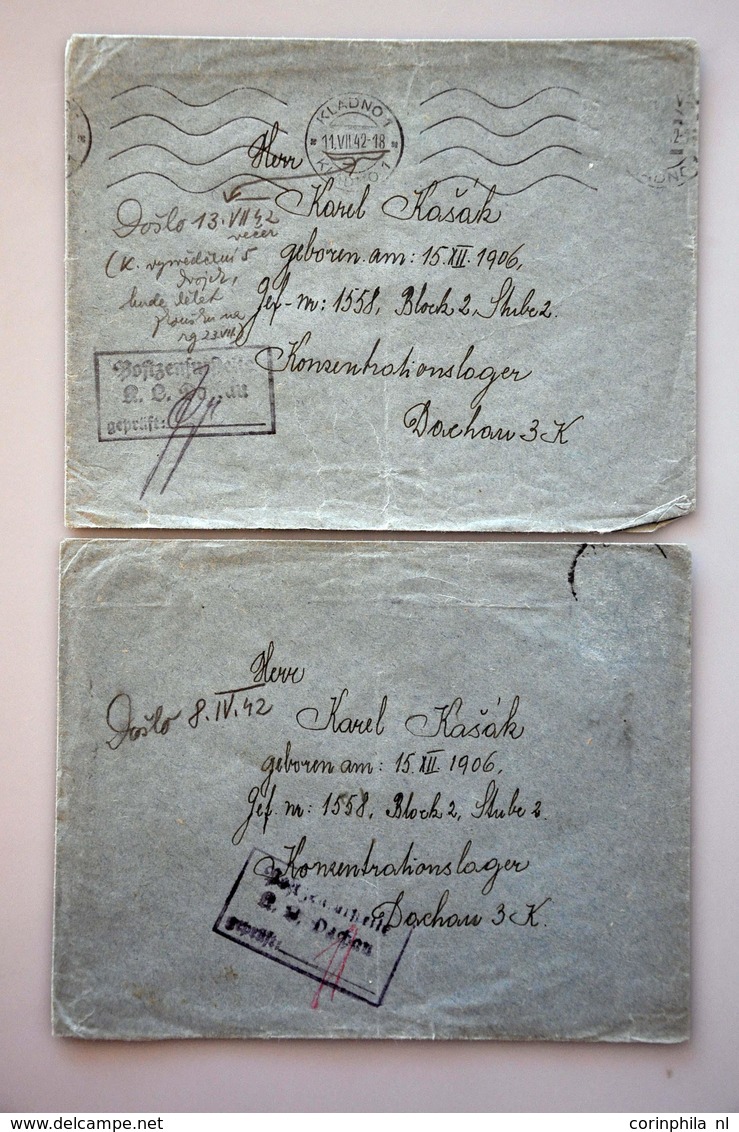 KLADNO 1
11.VII.42-18
KLADNO 1
Herr
Karel Kašák
Došlo 13.VII 42
večer
geboren am: 15.XII. 1906,
(K.
bude
Gef.-nr: 1558, Block 2, Stube 2.
na
23.VII.)
Konzentrationslager
Postzensurstelle
K. L. Dachau
geprüft:
Dachau 3 K
Herr
Došlo 8.IV.42
Karel Kašák
geboren am: 15.XII 1906,
Gef. nr: 1558, Block 2, Stube 2.
Konzentrationslager
Postzensurstelle
K. L. Dachau
geprüft:
Dachau 3 K.
corinphila nl